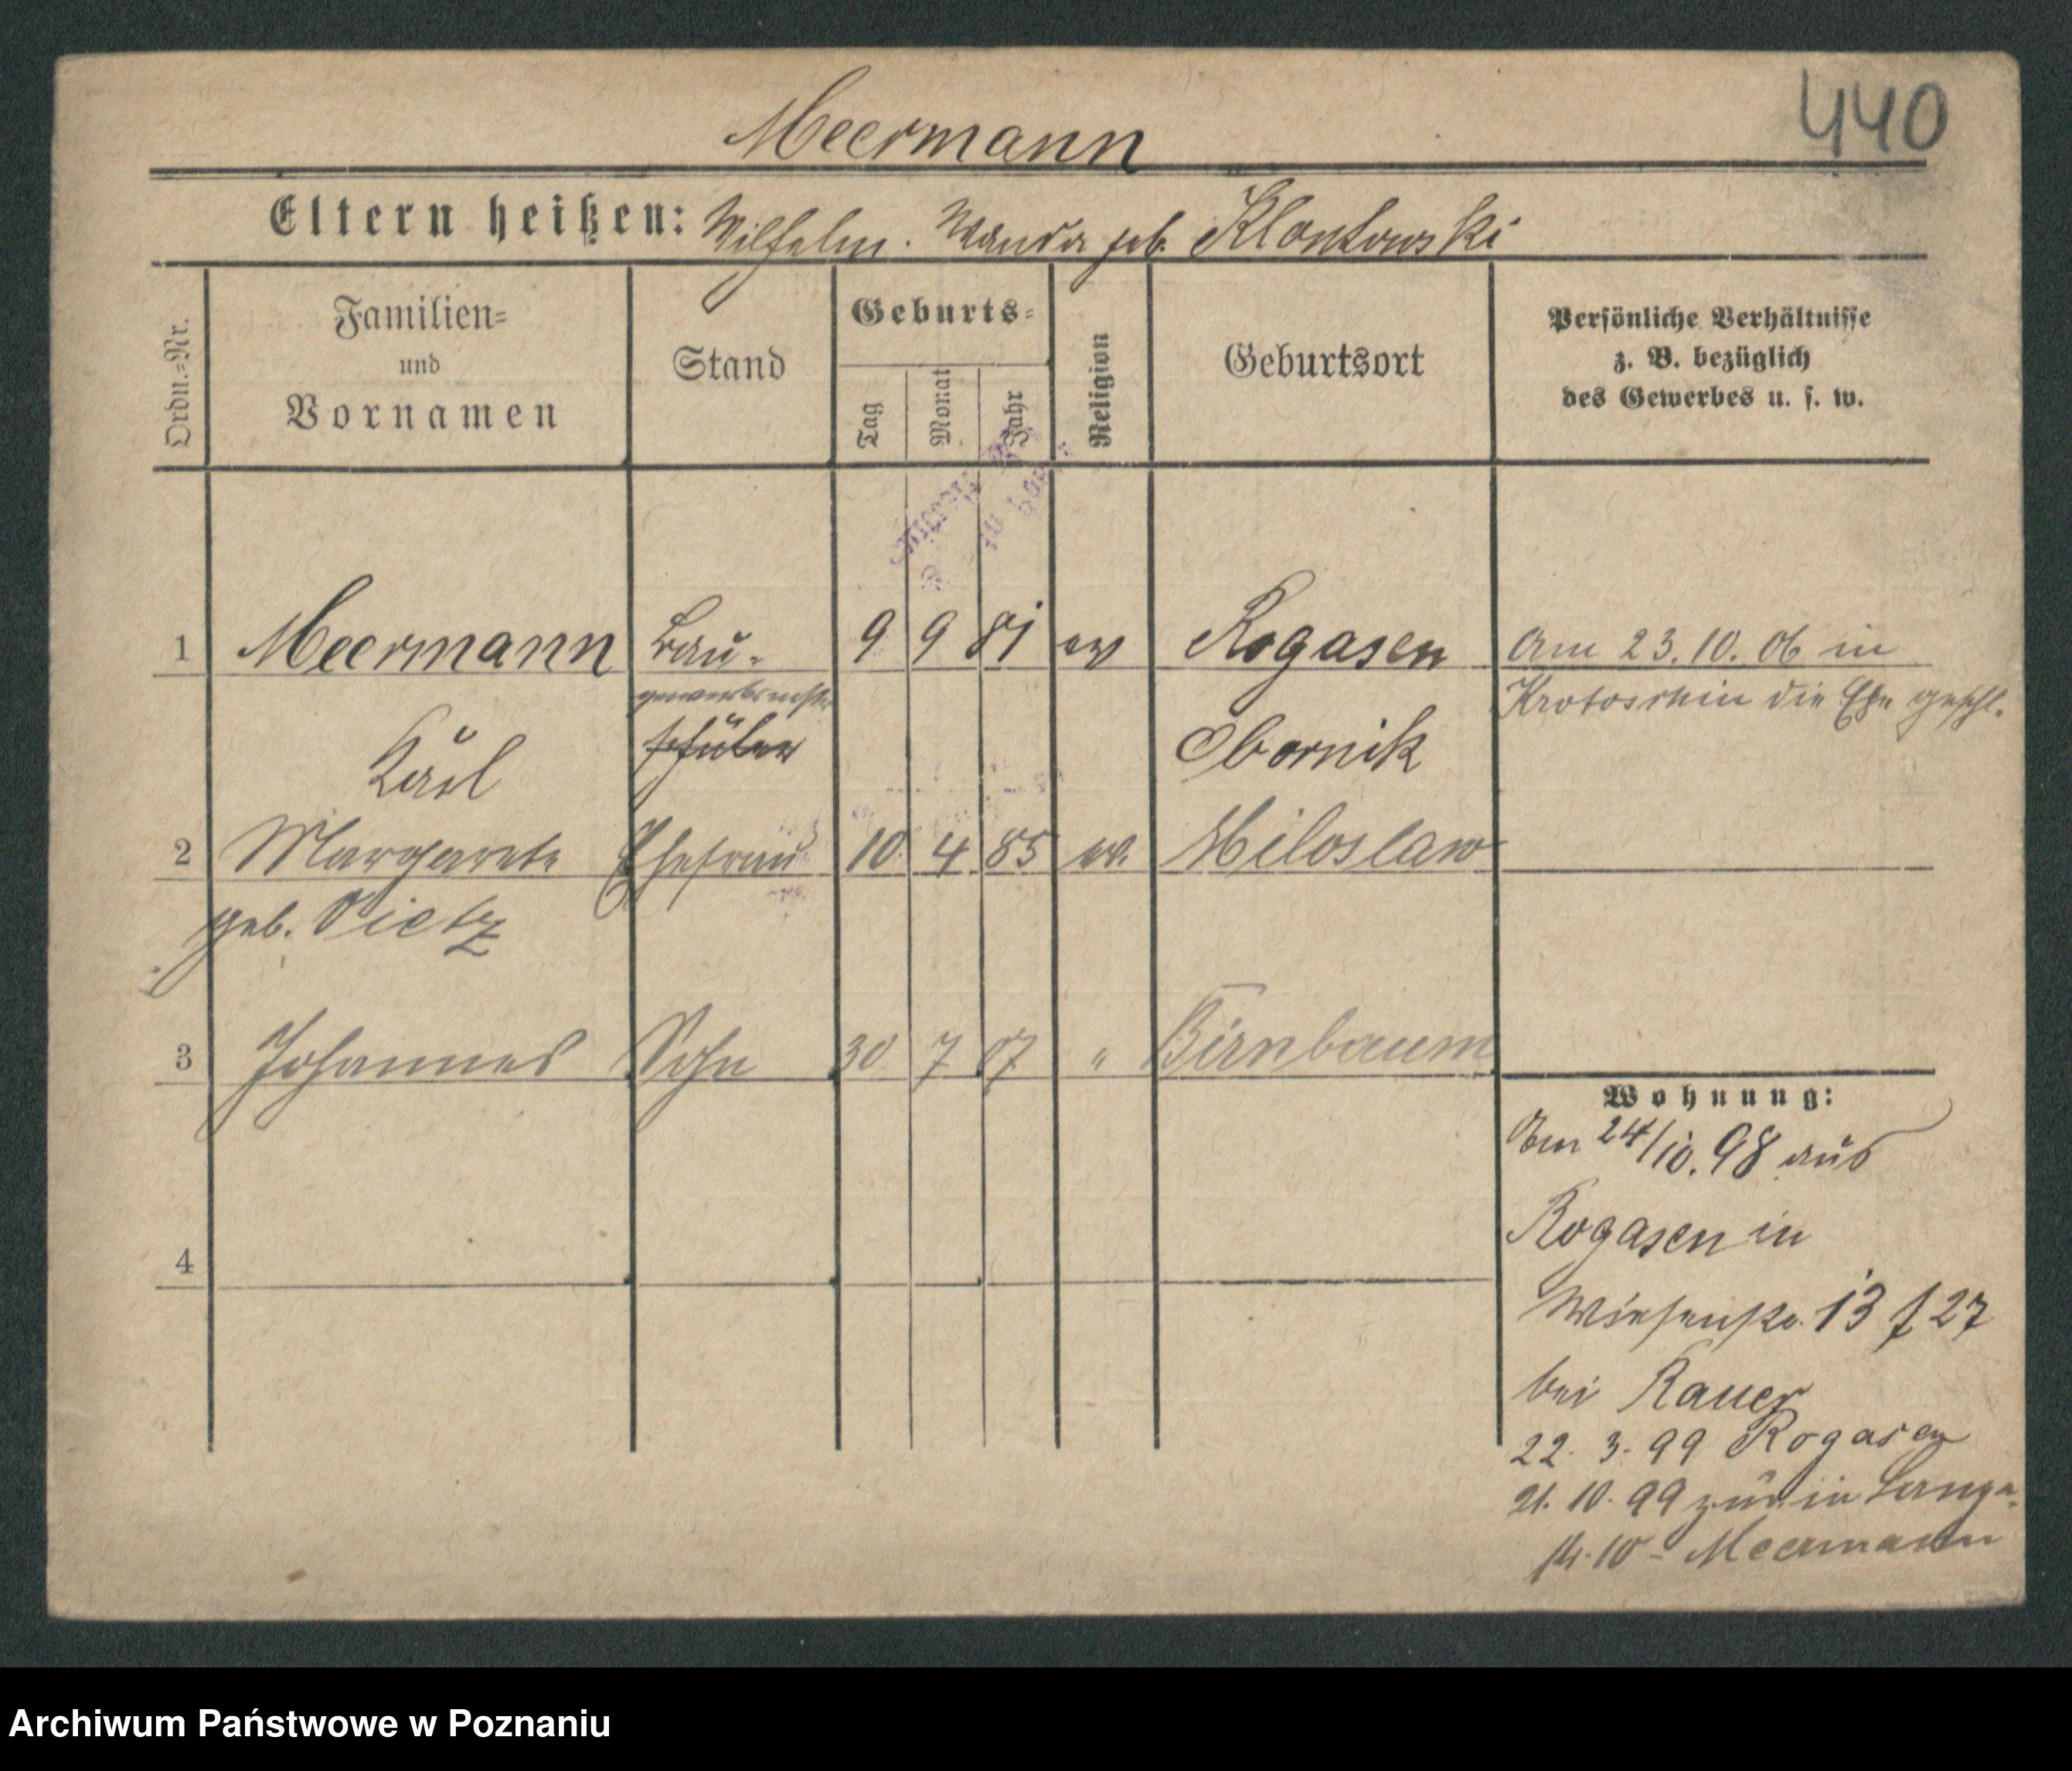 440
Meermann
Eltern heißen: Wilhelm. Wanda geb. Klontowski
Ordn.-Nr.
Familien-
und
Vornamen
Stand
Geburts-
Tag
Monat
Jahr
Religion
Geburtsort
Persönliche Verhältnisse
z. B. bezüglich
des Gewerbes u. s. w.
1 Meermann Bau- 9 9 81 ev Rogasen Am 23. 10. 06 in
Krotoschin die Ehe geschl.
Karl schüler Obornik
2 Margarete Ehefrau 10. 4 85 ev. Miloslaw
geb. Dietz
3 Johannes Sohn 30 7 07 " Birnbaum
Wohnung:
Am 24/10. 98 aus
Rogasen in
4
Wiesenstr. 13 f 27
bei Rauer
22. 3. 99 Rogasen
21. 10. 99 zur. in Lange-
str. 10 - Meermann
Archiwum Państwowe w Poznaniu